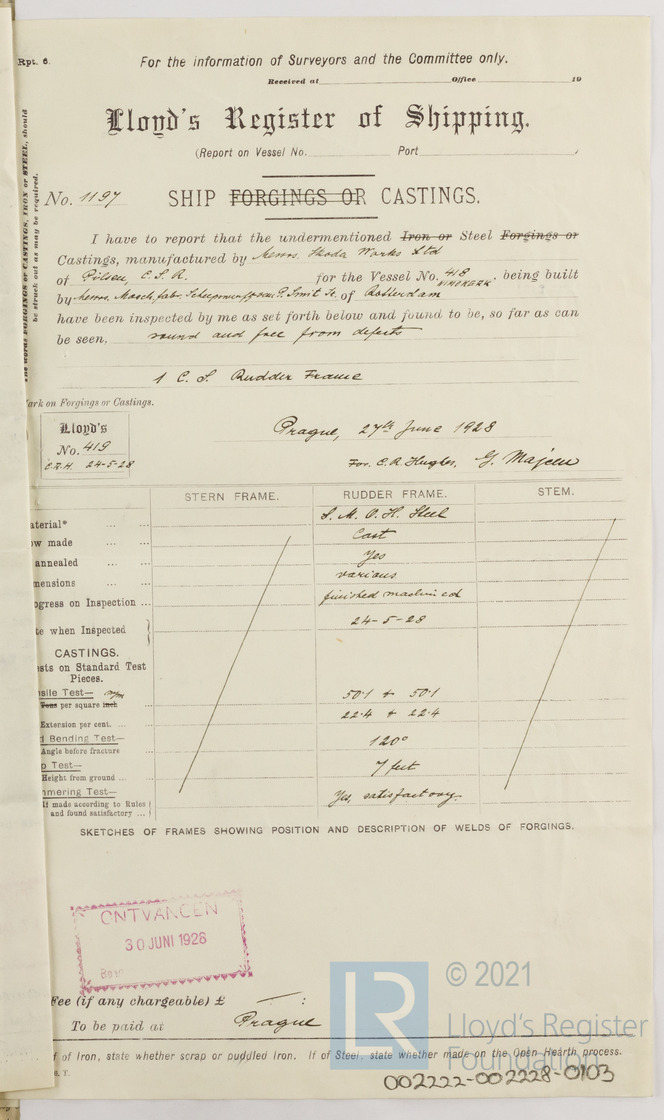 Rpt. 6.
For the information of Surveyors and the Committee only.
Received at Office 19
Lloyd's Register of Shipping.
(Report on Vessel No. Port
No. 1197 SHIP FORGINGS OR CASTINGS.
The words FORGINGS or CASTINGS, IRON or STEEL, should
be struck out as may be required.
I have to report that the undermentioned Iron or Steel Forgings or
Castings, manufactured by Messrs. Skoda Works Ltd
of Pilsen C.S.R. for the Vessel No. 418 being built
by Messrs. Masch. fab. P. Smit Jr. of Rotterdam
have been inspected by me as set forth below and found to be, so far as can
be seen, sound and free from defects
1 C. S. Rudder Frame
ark on Forgings or Castings.
Lloyd's
No. 419
C.R.H. 24-5-28
Prague, 27th June 1928
For. C. R. Hughes,
STERN FRAME. RUDDER FRAME. STEM.
aterial* S. M. O. H. Steel
ow made Cast
annealed Yes
mensions various
ogress on Inspection finished machined
te when Inspected 24-5-28
CASTINGS.
sts on Standard Test
Pieces.
sile Test—
Tons per square inch 50.1 & 50.1
Extension per cent. 22.4 & 22.4
d Bending Test—
Angle before fracture 120°
p Test—
Height from ground 7 feet
mmering Test—
If made according to Rules
and found satisfactory Yes, satisfactory.
SKETCHES OF FRAMES SHOWING POSITION AND DESCRIPTION OF WELDS OF FORGINGS.
ONTVANGEN
30 JUNI 1928
Fee (if any chargeable) £ :
To be paid at Prague
f of Iron, state whether scrap or puddled iron. If of Steel, state whether made on the Open Hearth process.
© 2021
Lloyd's Register
Foundation
002222-002228-0103